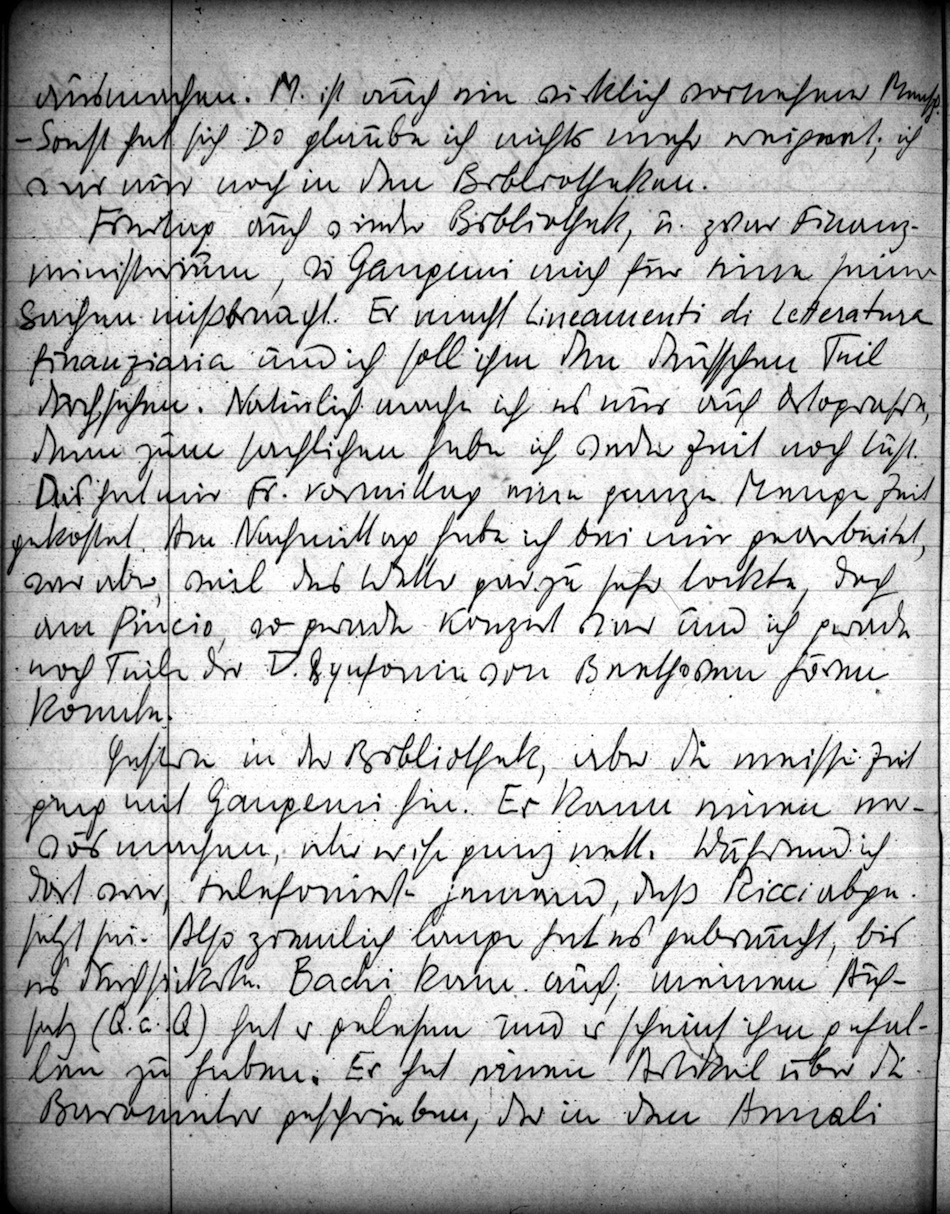 ausmachen. M. ist auch ein wirklich vornehmer Mensch.
- Sonst hat sich Do glaube ich nichts mehr ereignet; ich
war nur noch in den Bibliotheken.
Freitag auch wieder Bibliothek, u. zwar Finanz-
ministerium, wo Gangemi mich für eine seiner
Sachen mißbraucht. Er macht Lineamenti di Letteratura
finanziaria und ich soll ihm den deutschen Teil
durchsehen. Natürlich mache ich es nur auf Ortografie,
denn zum sachlichen habe ich weder Zeit noch Lust.
Das hat mir Fr. vormittag eine ganze Menge Zeit
gekostet. Am Nachmittag habe ich bei mir gearbeitet,
war aber, weil das Wetter gar zu sehr lockte, doch
am Pincio, wo gerade Konzert war und ich gerade
noch Teile der V. Synfonie von Beethoven hören
konnte.
Gestern in der Bibliothek, aber die meiste Zeit
ging mit Gangemi hin. Er kann einen ner-
vös machen, aber er ist ganz nett. Während ich
dort war, telefonierte jemand, daß Ricci abge-
setzt sei. Also ziemlich lange hat es gebraucht, bis
es durchsickerte. Bachi kam auch, meinen Auf-
satz (Q. c. Q) hat er gelesen und er scheint ihm gefal-
len zu haben. Er hat einen Artikel über die
Barometer geschrieben, der in den Annali